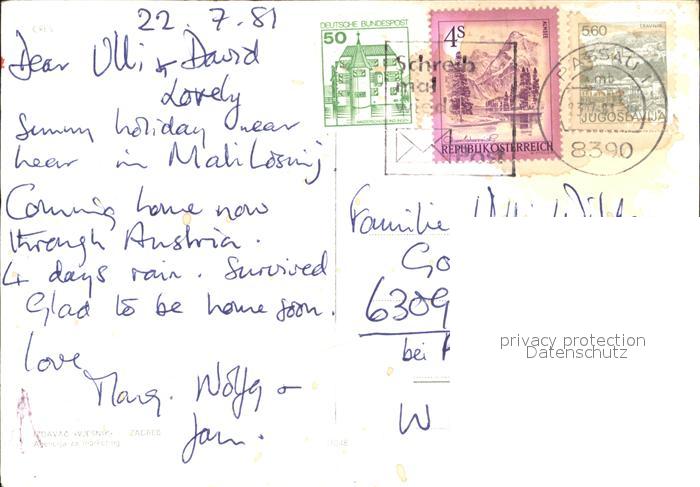 22. 7. 81
CRES
Dear Ulli + David
Lovely
Sunny holiday near
hear in Mali Lošinj
Coming home now
through Austria.
4 days rain. Survived
Glad to be home soon.
love
Marg. Wolfg +
ZAGREB
DEUTSCHE BUNDESPOST
50
4S
REPUBLIK ÖSTERREICH
5,60
JUGOSLAVIJA
Schreib
mal
PASSAU 1
8390
Familie Ulli
Go
6309
bei
W
privacy protection
Datenschutz